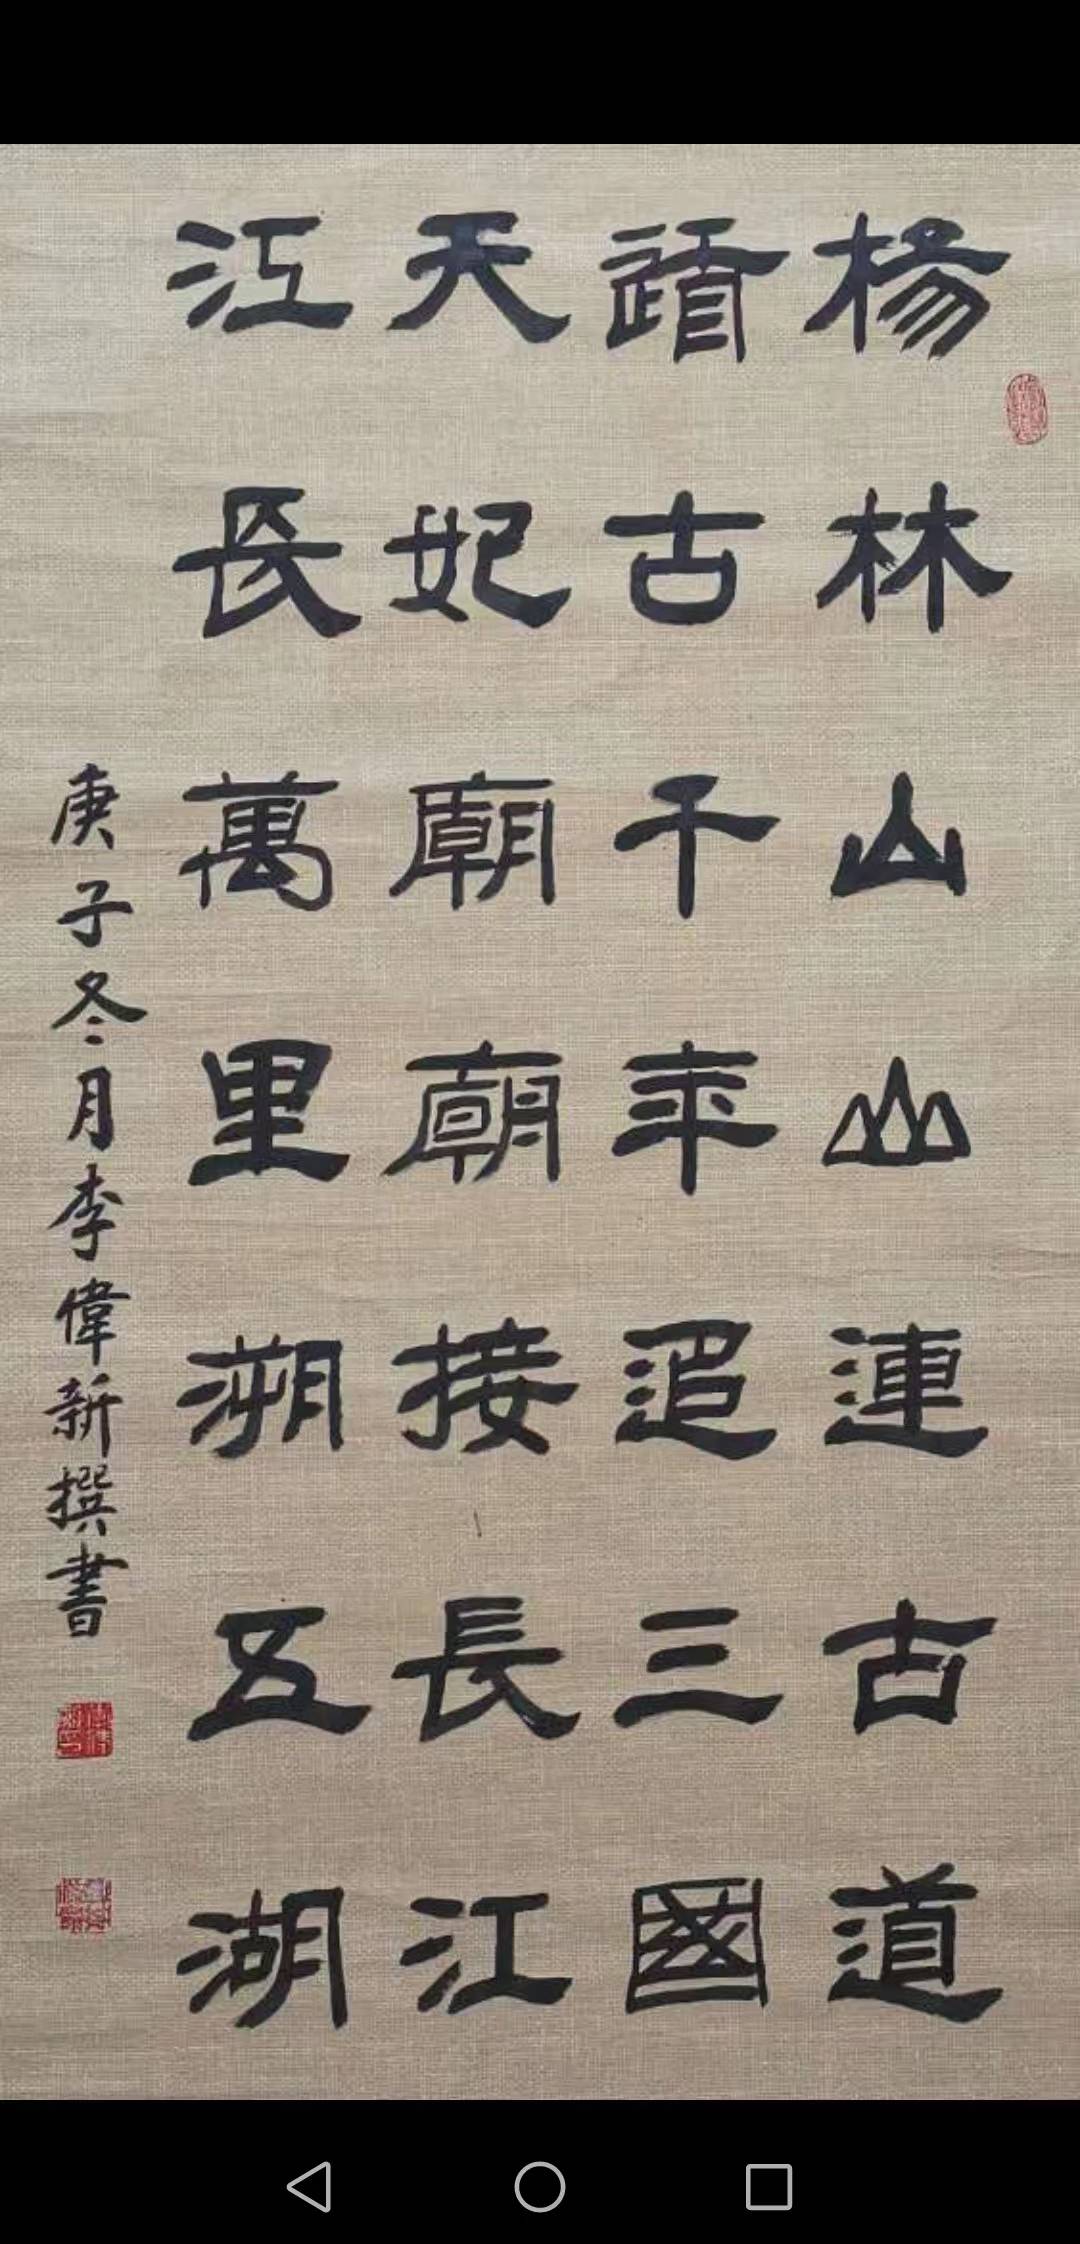 楊林山山連古道
道古千年追三國
天妃廟廟接長江
江長萬里溯五湖
庚子冬月李偉新撰書